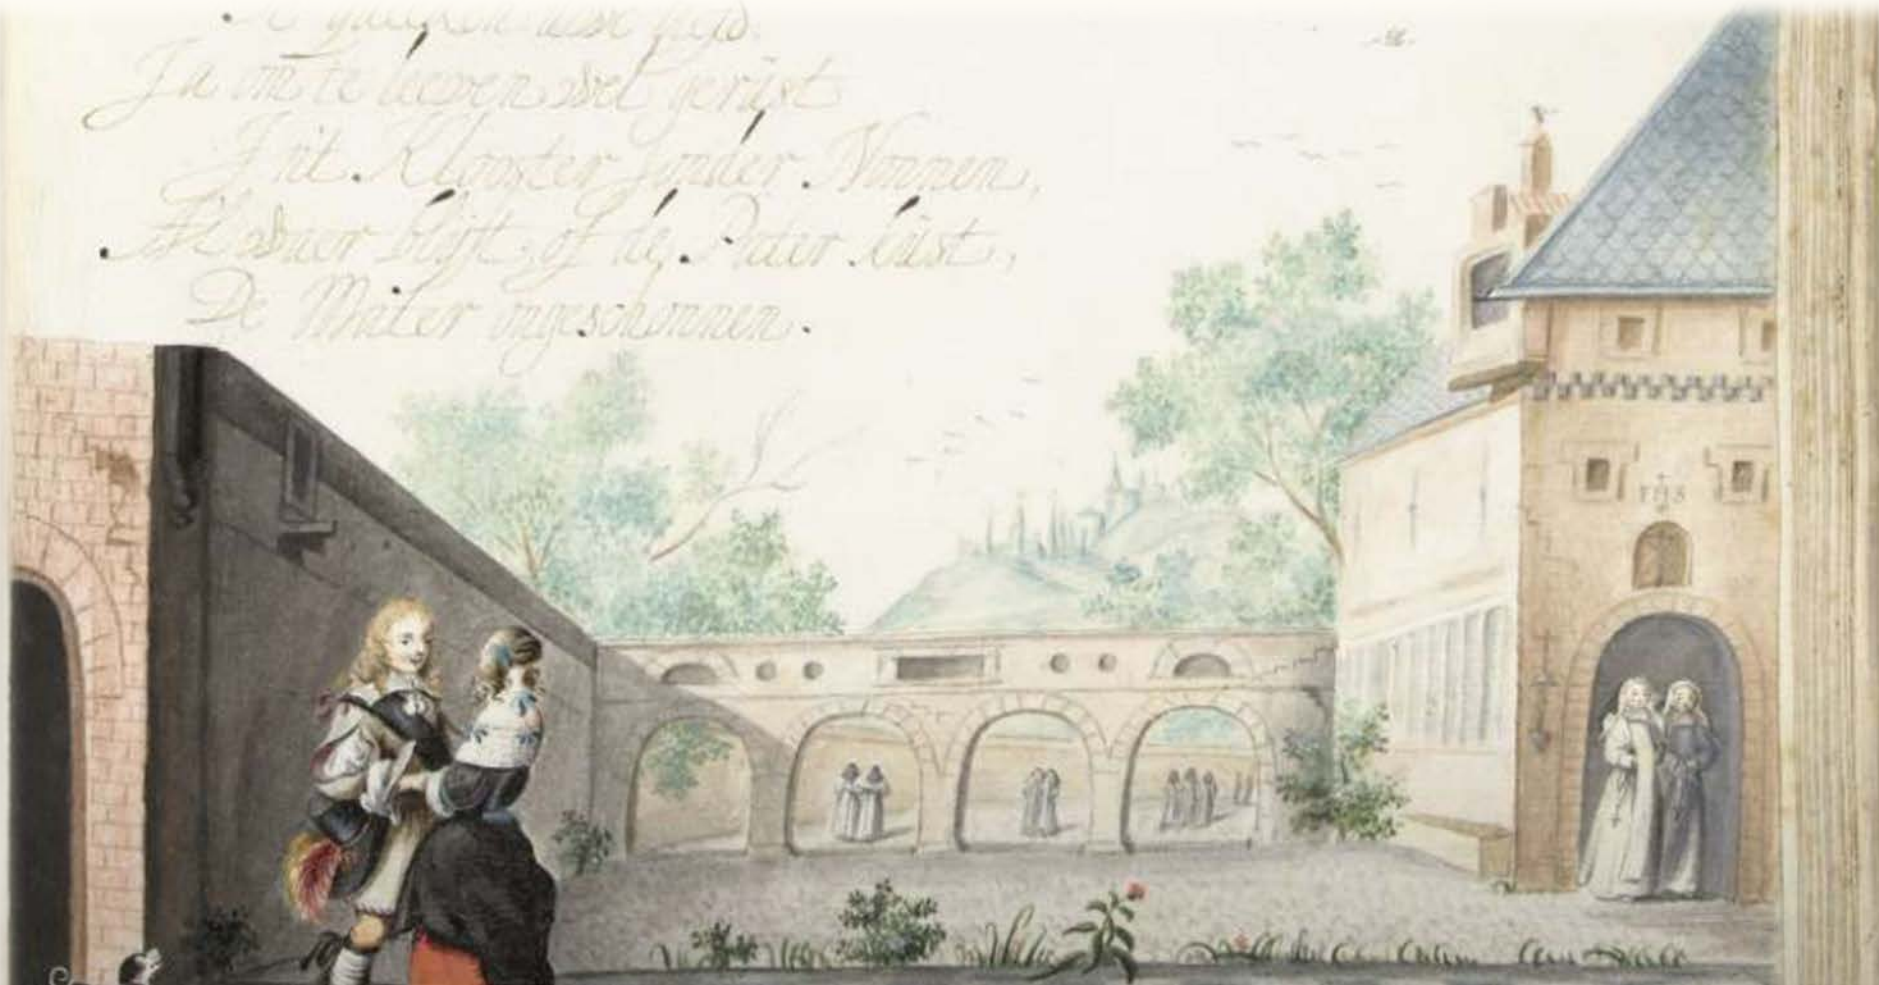 Ja om te leeven wel gerüst
Int Klooster sonder Nonnen,
Alwaer blijft, of de Pater küst,
De Mater ongeschonnen.
IHS